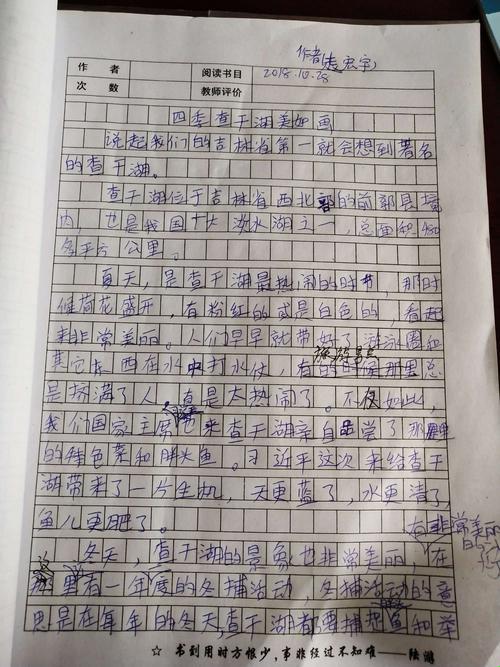 作者
2018.10.28
作 者
阅读书目
次 数
教师评价
四季查干湖美如画
说起我们的吉林省第一就会想到著名
的查干湖。
查干湖位于吉林省西北部的前郭县境
内，也是我国十大淡水湖之一，总面积480
多平方公里。
夏天，是查干湖最热闹的时节，那时
候荷花盛开，有粉红的或是白色的，看起
来非常美丽。人们早早就带好了游泳圈和
其它东西在水中打水仗，有的时候那里总
是挤满了人。真是太热闹了。不仅如此，
我们国家主席也来查干湖亲自品尝了那里
的特色菜和胖头鱼。习近平这次来给查干
湖带来了一片生机，天更蓝了，水更清了，
鱼儿更肥了。
有非常美丽
的
冬天，查干湖的景象也非常美丽，在
这里有一年度的冬捕活动，冬捕活动的意
思是在每年的冬天，查干湖都要捕捉鱼和举
☆ 书到用时方恨少，事非经过不知难——陆游